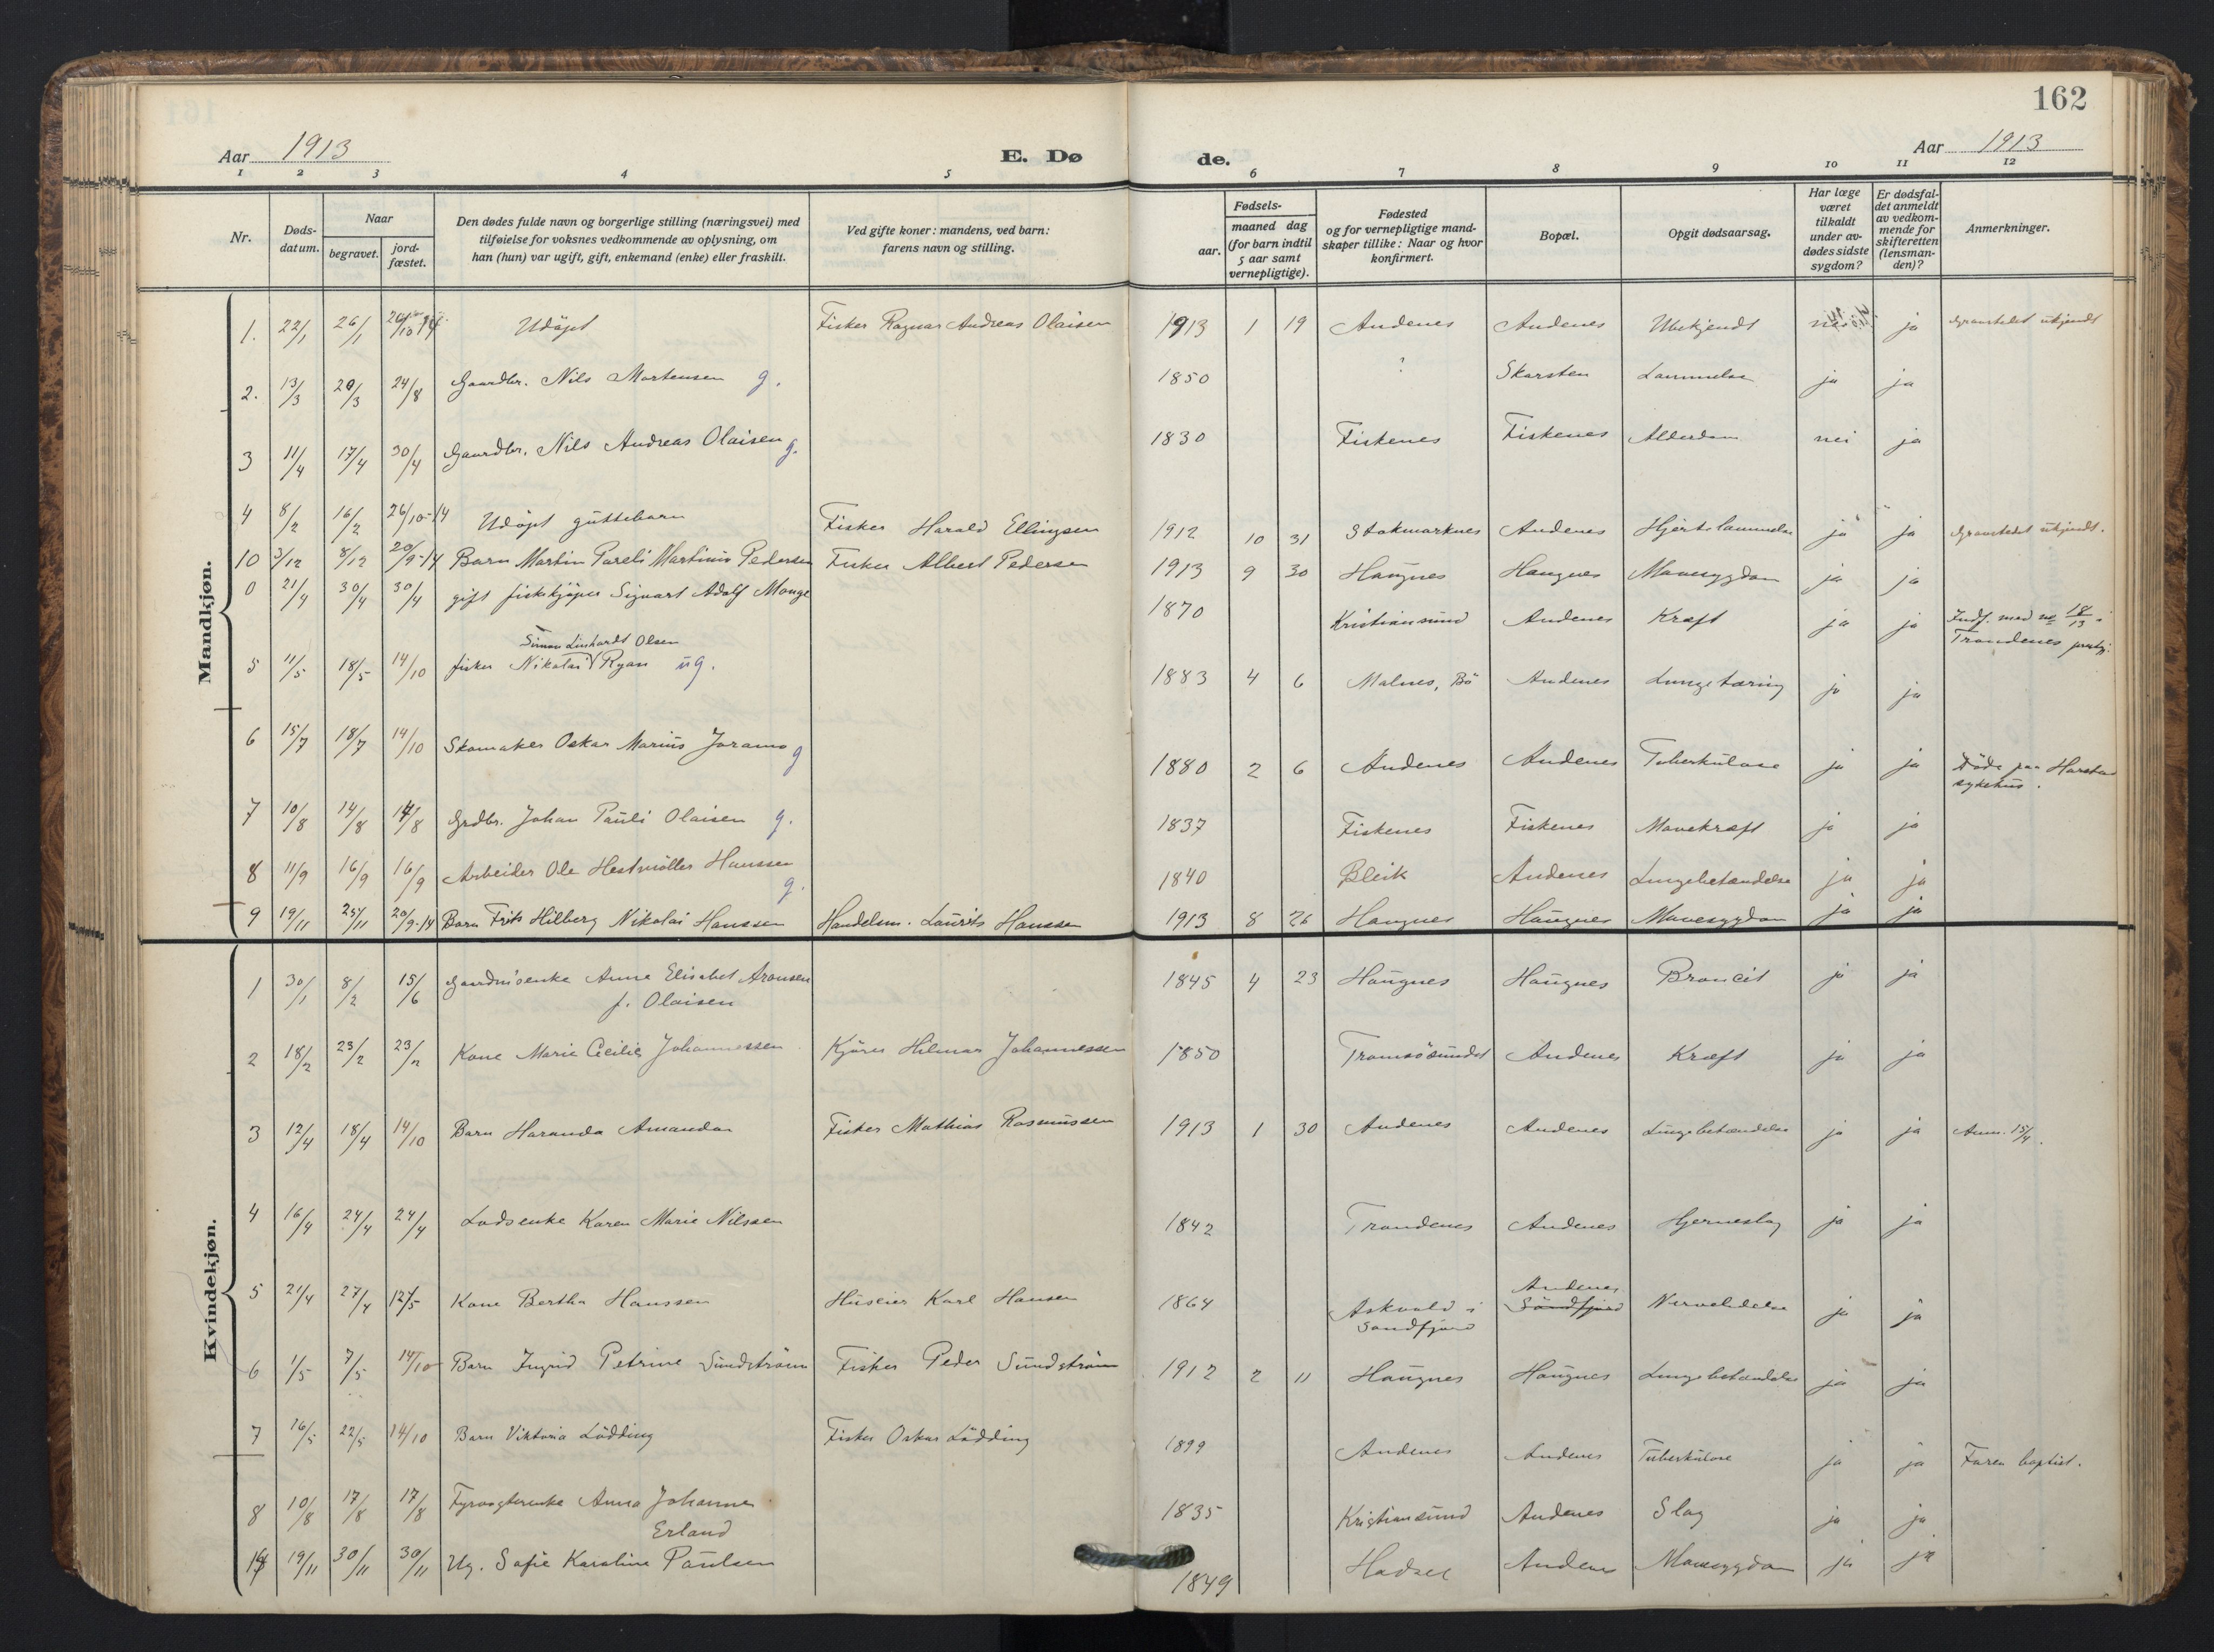 162
Aar 1913 E. Dø de. Aar 1913
1 2 3 4 5 6 7 8 9 10 11 12
Nr. Døds-datum. Naar begravet. jord-fæstet. Den dødes fulde navn og borgerlige stilling (næringsvei) med tilføielse for voksnes vedkommende av oplysning, om han (hun) var ugift, gift, enkemand (enke) eller fraskilt. Ved gifte koner: mandens, ved barn: farens navn og stilling. Fødsels- aar. maaned dag (for barn indtil 5 aar samt vernepligtige). Fødested og for vernepligtige mandskaper tillike: Naar og hvor konfirmert. Bopæl. Opgit dødsaarsag. Har læge været tilkaldt under avdødes sidste sygdom? Er dødsfaldet anmeldt av vedkommende for skifteretten (lensmanden)? Anmerkninger.
Mandkjøn.
1. 22/1 26/1 Udöpt Fisker Ragnar Andreas Olaisen 1913 1 19 Andenes Andenes Ubekjendt nei ja Gravstedet ukjendt
2. 13/3 20/3 24/8 Gaardbr. Nils Mortensen g. 1850 ? Skarsten Lammelse ja ja
3 11/4 17/4 30/4 Gaardbr. Nils Andreas Olaisen g. 1830 Fiskenes Fiskenes Alderdom nei ja
4 8/2 16/2 26/10-14 Udöpt guttebarn Fisker Harald Ellingsen 1912 10 31 Stokmarknes Andenes Hjertelammelse ja ja Gravstedet ukjendt.
10 3/12 8/12 20/9-14 Barn Martin Pareli Martinius Pedersen Fisker Albert Pedersen 1913 9 30 Haugnes Haugnes Mavesygdom ja ja
0 21/4 30/4 30/4 gift fiskekjøper Sigvart Adolf Monge 1870 Kristiansund Andenes Kræft ja ja Indf. med no 18/13 i Trondenes prestgj.
Simon Linhardt Olsen
5 11/5 18/5 14/10 fisker Nikolai Ryan ug. 1883 4 6 Malnes, Bö Andenes Lungetæring ja ja
6 15/7 18/7 14/10 Skomaker Oskar Marius Joramo g 1880 2 6 Andenes Andenes Tuberkulose ja ja Döde paa Harstad sykehus.
7 10/8 14/8 14/8 Grdbr. Johan Pauli Olaisen g. 1837 Fiskenes Fiskenes Mavekræft ja ja
8 11/9 16/9 16/9 Arbeider Ole Hestmöller Hanssen g. 1840 Bleik Andenes Lungebetændelse ja ja
9 19/11 25/11 20/9-14 Barn Frits Hilberg Nikolai Hanssen Handelsm. Laurits Hanssen 1913 8 26 Haugnes Haugnes Mavesygdom ja ja
Kvindekjøn.
1 30/1 8/2 15/6 Gaardm's enke Anne Elisabet Aronsen f. Olaisen 1845 4 23 Haugnes Haugnes Broncit ja ja
2 18/2 23/2 23/2 Kone Marie Cecilie Johannessen Kjörer Hilmar Johannessen 1850 Tromsösundet Andenes Kræft ja ja
3 12/4 18/4 14/10 Barn Haranda Amanda Fisker Mathias Rasmussen 1913 1 30 Andenes Andenes Lungebetændelse ja ja Anm. 15/4.
4 16/4 24/4 24/4 Lodsenke Karen Marie Nilssen 1842 Trondenes Andenes Hjerneslag ja ja
5 21/4 27/4 12/5 Kone Bertha Hanssen Huseier Karl Hansen 1864 Askvold i Sondfjord Andenes Söndfjord Nervelidelse ja ja
6 1/5 7/5 14/10 Barn Ingrid Petrine Sundström Fisker Peder Sundström 1912 2 11 Haugnes Haugnes Lungebetændelse ja ja
7 16/5 22/5 14/10 Barn Viktoria Lödding Fisker Oskar Lödding 1899 Andenes Andenes Tuberkulose ja ja Faren baptist.
8 10/8 17/8 17/8 Fyrvogterenke Anna Johanne Erland 1835 Kristiansund Andenes Slag ja ja
19/11 30/11 30/11 Ug. Sofie Karoline Paulsen 1849 Hadsel Andenes Mavesygdom ja ja